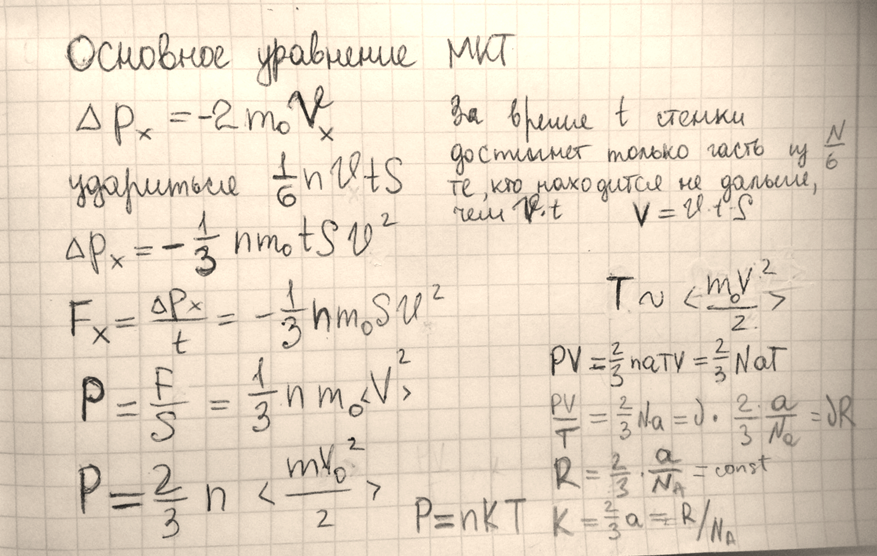 Основное уравнение МКТ
Δpₓ = -2m₀Vₓ
ударитьсе 1/6 nVtS
Δpₓ = -1/3 nm₀tSV²
Fₓ = ΔPₓ/t = -1/3 nm₀SV²
P = F/S = 1/3 n m₀<V²>
P = 2/3 n <mV₀²/2>
За время t стенки
достигнет только часть из N/6
те, кто находится не дальше,
чем V·t V = V·t·S
T ~ <m₀V²/2>
PV = 2/3 naTV = 2/3 NaT
PV/T = 2/3 Na = ∂ · 2/3 · a/Nₐ = ∂R
R = 2/3 · a/N_A = const
K = 2/3 a = R/N_A
P = nKT